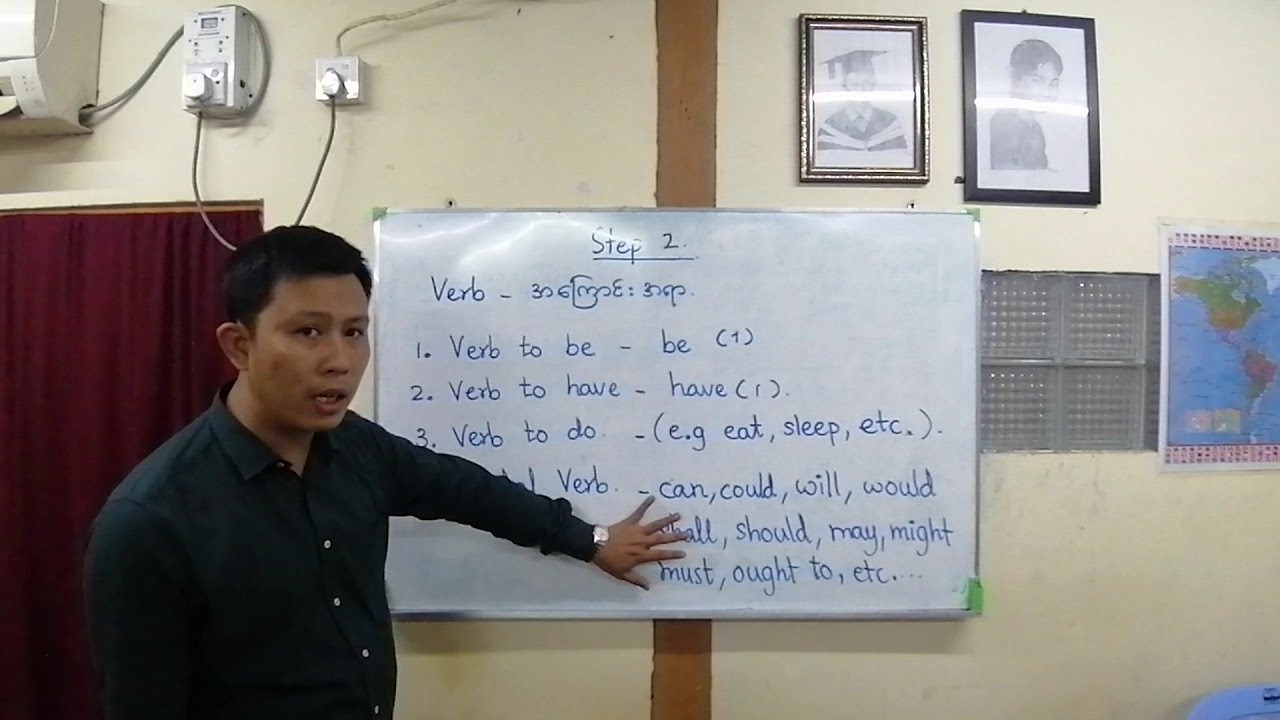 Step 2.
Verb - အကြောင်းအရာ.
1. Verb to be - be (1)
2. Verb to have - have (1).
3. Verb to do. - (e.g eat, sleep, etc.).
Verb. - can, could, will, would
shall, should, may, might
must, ought to, etc....